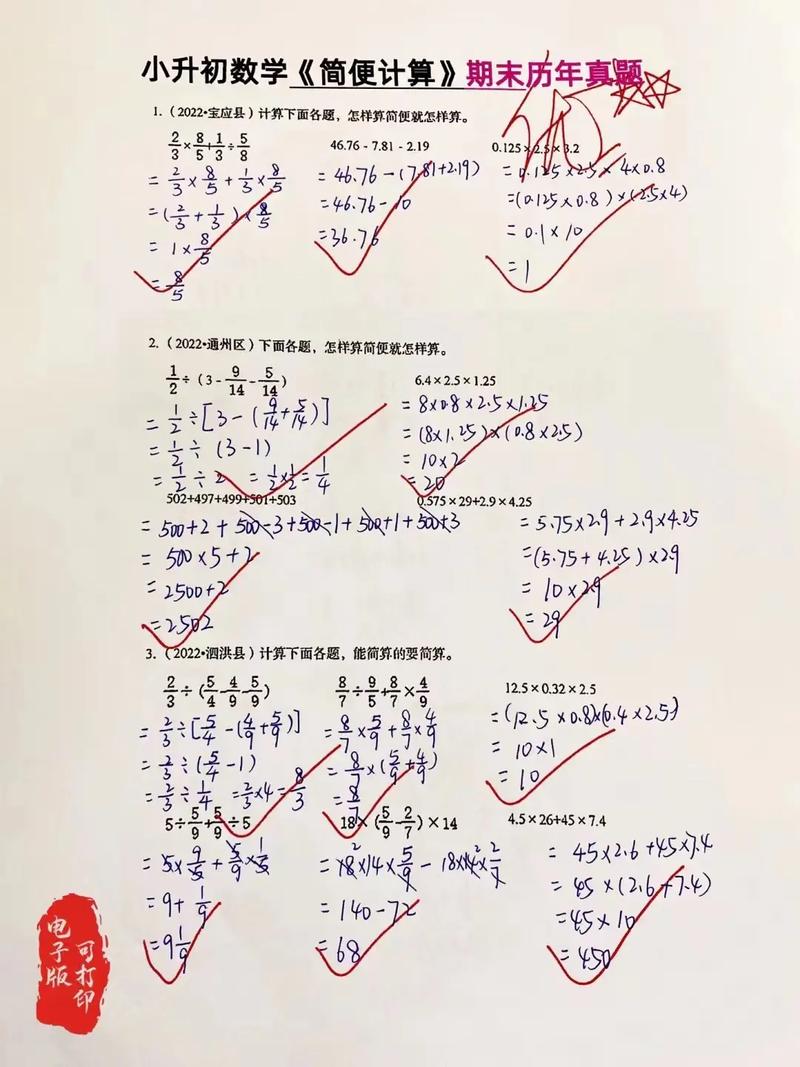 小升初数学《简便计算》期末历年真题
1.（2022•宝应县）计算下面各题，怎样算简便就怎样算。
2/3×8/5+1/3÷5/8
=2/3×8/5+1/3×8/5
=(2/3+1/3)×8/5
=1×8/5
=8/5
46.76-7.81-2.19
=46.76-(7.81+2.19)
=46.76-10
=36.76
0.125×2.5×3.2
=0.125×2.5×4×0.8
=(0.125×0.8)×(2.5×4)
=0.1×10
=1
2.（2022•通州区）下面各题，怎样算简便就怎样算。
1/2÷(3-9/14-5/14)
=1/2÷[3-(9/14+5/14)]
=1/2÷(3-1)
=1/2÷2 =1/2×1/2=1/4
6.4×2.5×1.25
=8×0.8×2.5×1.25
=(8×1.25)×(0.8×2.5)
=10×2
=20
502+497+499+501+503
=500+2+500-3+500-1+500+1+500+3
=500×5+2
=2500+2
=2502
0.575×29+2.9×4.25
=5.75×2.9+2.9×4.25
=(5.75+4.25)×2.9
=10×2.9
=29
3.（2022•泗洪县）计算下面各题，能简算的要简算。
2/3÷(5/4-4/9-5/9)
=2/3÷[5/4-(4/9+5/9)]
=2/3÷(5/4-1)
=2/3÷1/4 =2/3×4=8/3
8/7÷9/5+8/7×4/9
=8/7×5/9+8/7×4/9
=8/7×(5/9+4/9)
=8/7
12.5×0.32×2.5
=(12.5×0.8)×(0.4×2.5)
=10×1
=10
5÷5/9+5/9÷5
=5×9/5+5/9×1/5
=9+1/9
=9 1/9
18×(5/9-2/7)×14
=18×14×5/9-18×14×2/7
=140-72
=68
4.5×26+45×7.4
=45×2.6+45×7.4
=45×(2.6+7.4)
=45×10
=450
电子版
可打印